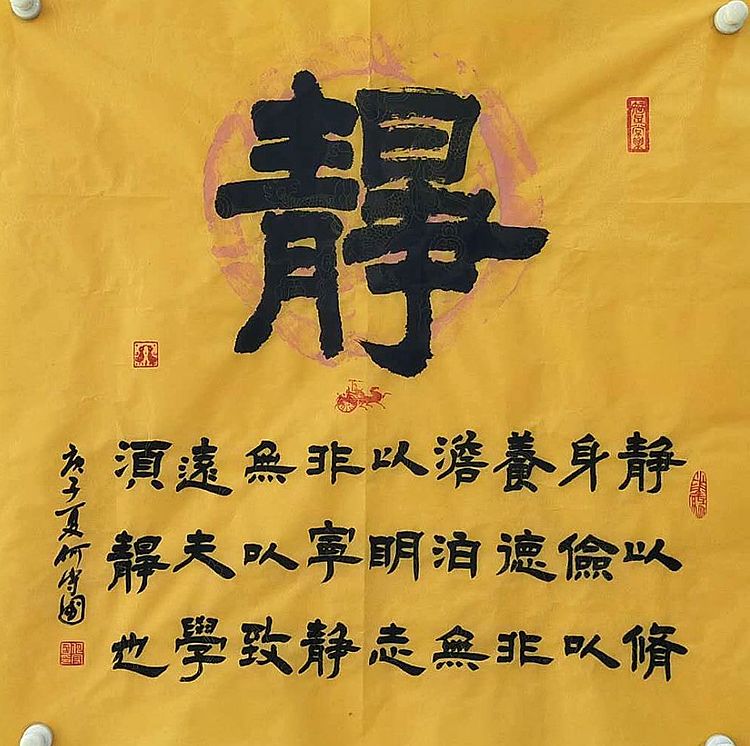 靜
静以脩
身儉以
養德非
澹泊無
以明志
非寧静
無以致
遠夫學
須靜也
庚子夏何